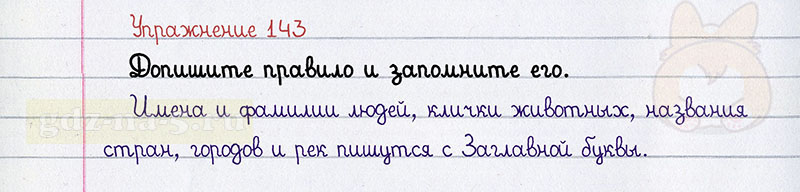 Упражнение 143
Допишите правило и запомните его.
Имена и фамилии людей, клички животных, названия
стран, городов и рек пишутся с Заглавной буквы.
gdz-na-5.ru